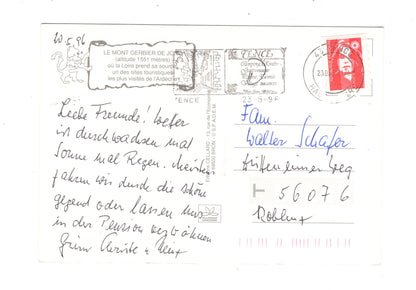 20.5.96
LE MONT GERBIER DE JONC
(altitude 1551 mètres)
où la Loire prend sa source
un des sites touristiques
les plus visités de l'Ardèche
TENCE
TENCE
23-5-96
Liebe Freunde! Wetter
ist durchwachsen mal
Sonne mal Regen. Meistens
fahren wir durch die schöne
gegend oder lassen uns
in der Pension verwöhnen
Fam.
Walter Schäfer
Weg
56076
Koblenz
T